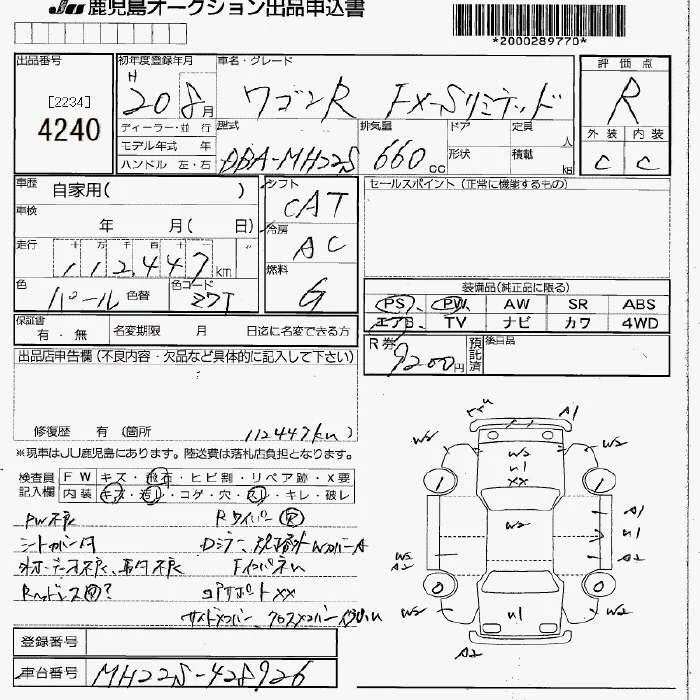 JU 鹿児島オークション出品申込書
*2000289770*
出品番号
[2234]
4240
初年度登録年月
H
20 8月
車名・グレード
ワゴンR FX-Sリミテッド
評価点
R
外装 内装
C C
ディーラー・並行
モデル年式 年
ハンドル 左・右
型式
DBA-MH22S
排気量
660cc
ドア
形状
定員
人
積載
kg
車歴
自家用( )
車検
年 月( 日)
走行
十 万 千 百 十
112,447km
色
パール
色替
色コード
Z7T
シフト
CAT
冷房
AC
燃料
G
セールスポイント(正常に機能するもの)
装備品(純正品に限る)
PS PW AW SR ABS
エアB TV ナビ カワ 4WD
保証書
有・無
名変期限 月 日迄に名変できる方
R券
9200円
預託済
後日品
出品店申告欄(不良内容・欠品など具体的に記入して下さい)
修復歴 有(箇所 112447km)
※現車はJU鹿児島にあります。陸送費は落札店負担となります。
検査員記入欄
FW キズ・飛石・ヒビ割・リペア跡・X要
内装 キズ・汚レ・コゲ・穴・スレ・キレ・破レ
PW不良
Rワイパー
登録番号
車台番号
MH22S-428926
A1
W2
W2
W2
U1
XX
1
1
W2
A1
U1
A2
W2
A2
0
0
W2
W2
U1
A2